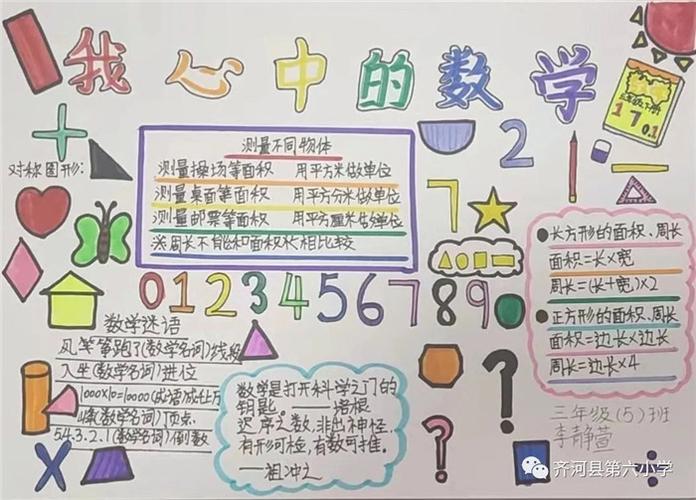 我心中的数学
2
1 7 0.1
对称图形:
测量不同物体
测量操场等面积 用平方米做单位
测量桌面等面积 用平方分米做单位
测量邮票等面积 用平方厘米做单位
※周长不能和面积长相比较
7
0123456789
长方形的面积、周长
面积=长×宽
周长=(长+宽)×2
正方形的面积、周长
面积=边长×边长
周长=边长×4
数学迷语
风筝跑了(数学名词)线段
入坐(数学名词)进位
1000×10=10000(成语)成千上万
(数学名词)顶点
5.4.3.2.1(数学名词)倒数
数学是打开科学之门的
钥匙。——培根
迟序之数,非出神怪,
有形可检,有数可推。
——祖冲之
? ?
三年级(5)班
李静萱
X
÷
齐河县第六小学